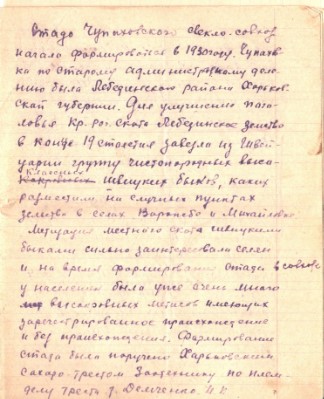 Стадо Чупаховского свекло-совхоз
начало формироватся в 1930 году. Чупахов-
ка по старому административному деле-
нию была Лебединского района Харьков-
ской губернии. Для улучшения пого-
ловья Кр. рог. скота Лебединское земство
в конце 19 столетия завезла из Швей-
царии группу чистопородных высо-
классных
швицких быков, каких
разместили на случных пунктах
земства в селах Ворожба и Михайловка.
Метизация местного скота швицкими
быками сильно заинтересовала селян
и на время формирования стада в совхозе
у населения было уже очень много
высокровных метисов имеющих
зарегестрированное происхождение
и без происхождения. Формирование
стада было поручено Харьковским
сахаро-трестом Зоотехнику по плем-
делу треста т. Демченко